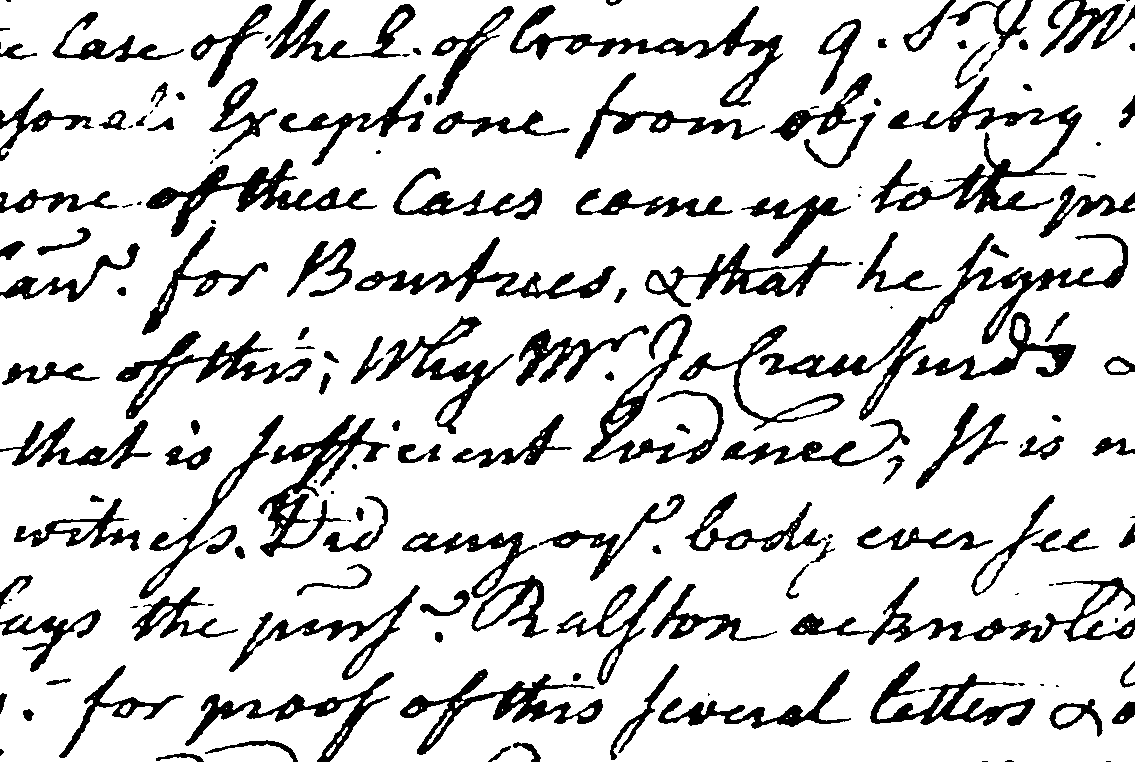 Case of the E. of Cromarty q. Sr. J. M
sonali Exceptione from objecting
none of these Cases come up to the pre
for Bourtrees, & that he signed
we of this; Why Mr. Jo Craufurd's &
that is sufficient Evidence; It is n
witness. Did any oyr. body ever see
says the purs. Ralston acknowled
for proof of this several letters & o